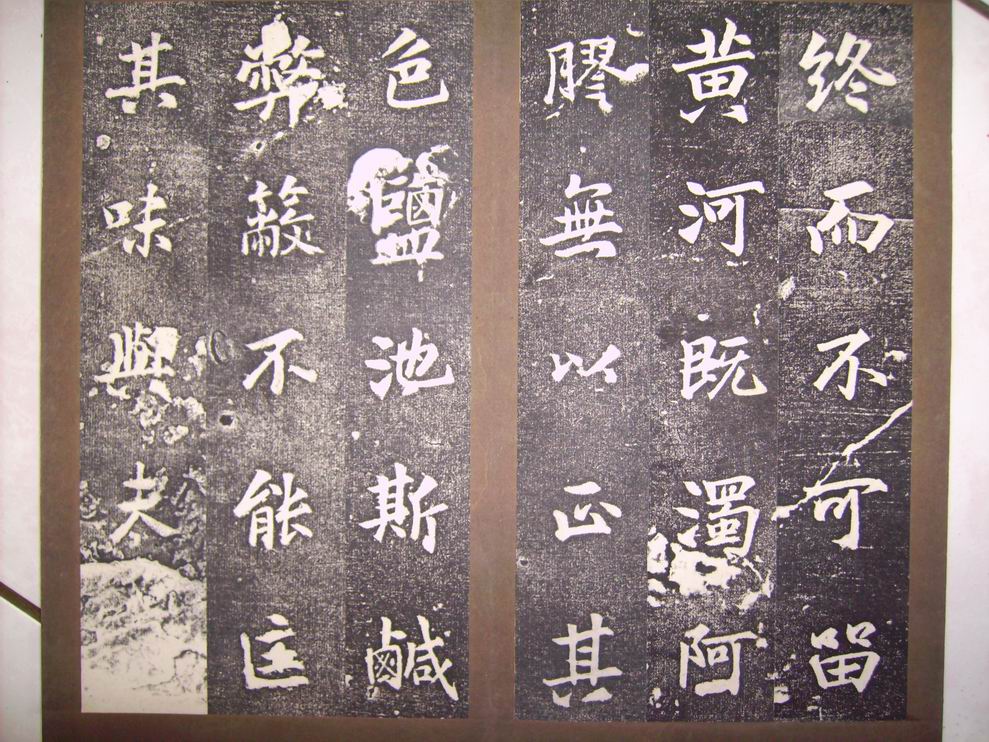 终而不可留
黄河既濁阿
膠無以正其
色鹽池斯鹹
弊簸不能匡
其味與夫